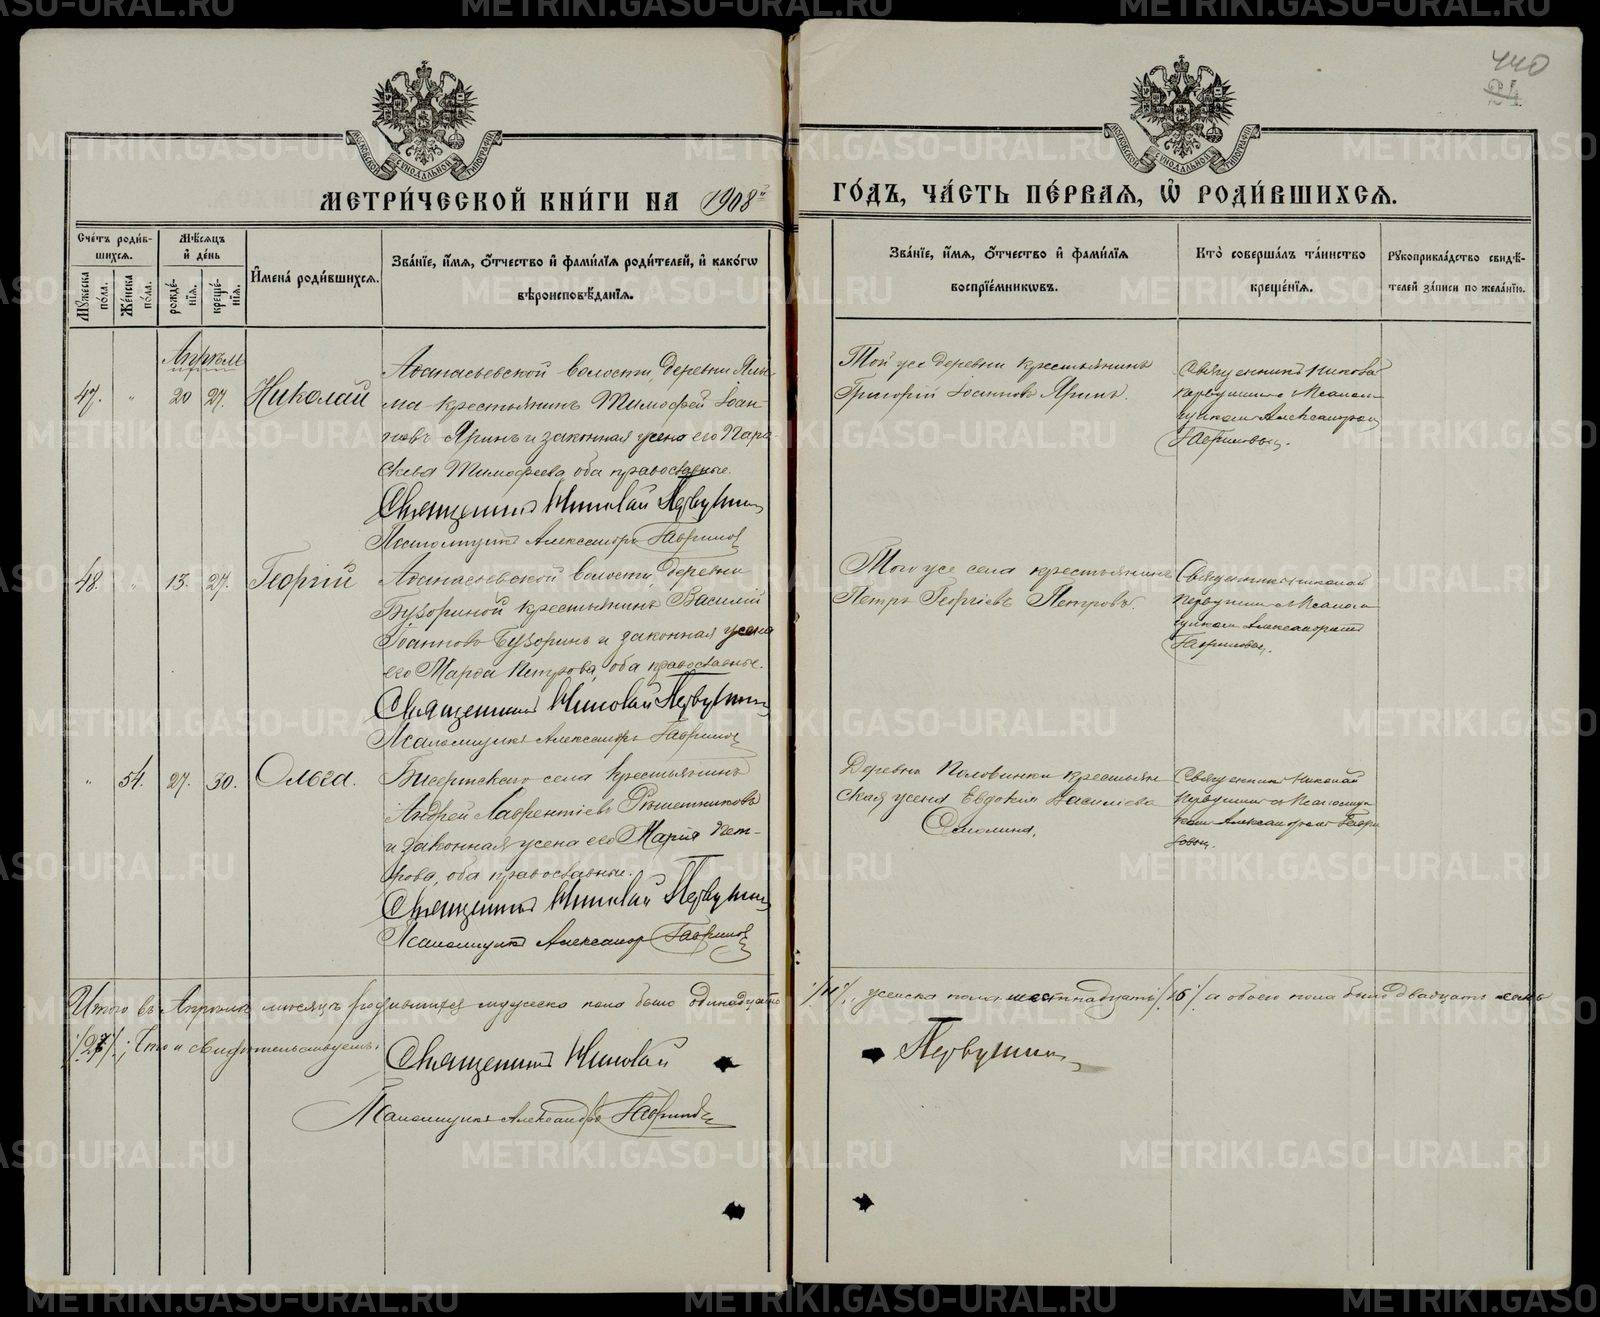 440
24
МОСКОВСКОЙ СѴНОДАЛЬНОЙ ТИПОГРАФІИ
МЕТРИ́ЧЕСКОЙ КНИ́ГИ НА 1908й ГО́ДЪ, ЧА́СТЬ ПЕ́РВАЯ, Ѽ РОДИ́ВШИХСЯ.
Сче́тъ роди́в-
шихся.
Мѣ́сяцъ
и҆ де́нь
Му́жеска
по́ла.
Же́нска
по́ла.
рожде́-
нїя.
креще́-
нїя.
И҆мена́ роди́вшихся.
Зва́нїе, и҆́мя, ѻ҆́тчество и҆ фами́лїя роди́телей, и҆ како́гѡ
вѣроисповѣ́данїя.
Зва́нїе, и҆́мя, ѻ҆́тчество и҆ фами́лїя
воспрїе́мникѡвъ.
Кто̀ соверша́лъ та́инство
креще́нїя.
Рꙋкоприкла́дство свидѣ́-
телей за́писи по жела́нїю.
Апрѣль
47. " 20 27. Николай
Аѳанасьевской волости, деревни
ма крестьянинъ Тимоѳей Іоан-
новъ Яринъ и законная жена его Пара-
скева Тимоѳеева, оба православные.
Священникъ Николай Первушин
Псаломщикъ Александръ Гаврилов
Той же деревни крестьянинъ
Григорій Іоанновъ Яринъ.
Священникъ Николай
Первушинъ с псалом-
щикомъ Александромъ
Гавриловым.
48. " 13. 27. Георгій
Аѳанасьевской волости, деревни
Бузориной крестьянинъ Василій
Іоанновъ Бузоринъ и законная жена
его Марѳа Петрова, оба православные.
Священникъ Николай Первушин
Псаломщикъ Александръ Гаврилов
Того же села крестьянинъ
Петръ Георгіевъ Петровъ.
Священникъ Николай
Первушинъ с псалом-
щикомъ Александромъ
Гавриловым.
" 54. 27. 30. Ольга.
Бисертского села крестьянинъ
Андрей Лаврентіевъ Рѣшетниковъ
и законная жена его Марія Пет-
рова, оба православные.
Священникъ Николай Первушин
Псаломщикъ Александр Гаврилов
Деревни Половинки крестьян-
ская жена Евдокія Василіева
Священникъ Николай
Первушинъ с псаломщи-
комъ Александромъ Гаври-
ловым.
Итого въ Апрѣлѣ мѣсяцѣ родившихся мужеска пола было одинадцать /11/, женска пола шестнадцать /16/ а обоего пола было двадцать семь
/27/; Что и свидѣтельствуемъ:
Священникъ Николай Первушин
Псаломщикъ Александръ Гаврилов
METRIKI.GASO-URAL.RU